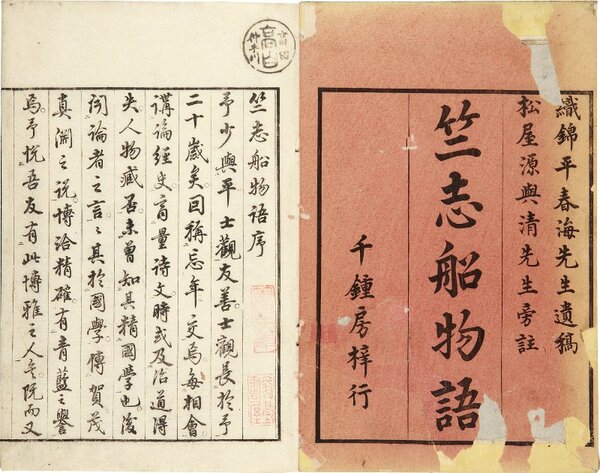 織錦平春海先生遺稿
松屋源與清先生旁註
竺志船物語
千鍾房梓行
竺志船物語序
予少與平士觀友善士觀長於予
二十歳矣因稱忘年交焉每相會
講論經史商量詩文時或及治道得
失人物臧否未曾知其精國學也後
論者之言其於國學傳賀茂
真淵之説博洽精確有青藍之譽
焉予悦吾友有此博雅之人矣既而又